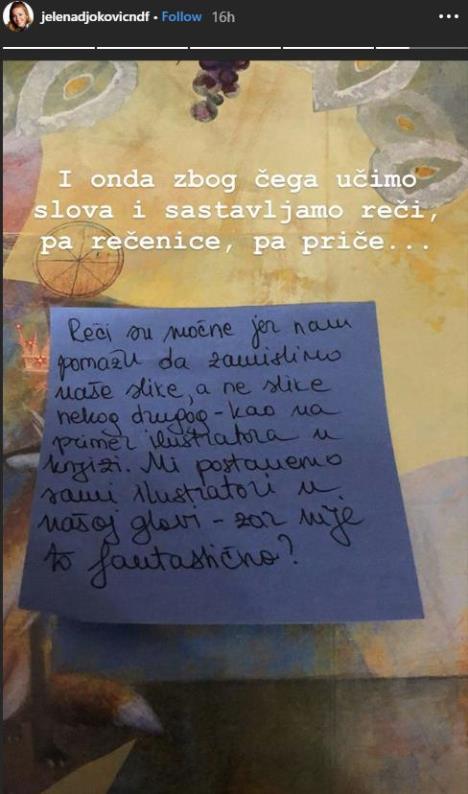 jelenadjokovicndf • Follow 16h
I onda zbog čega učimo
slova i sastavljamo reči,
pa rečenice, pa priče...
Reči su moćne jer nam
pomažu da zamislimo
naše slike, a ne slike
nekog drugog - kao na
primer ilustratora u
knjizi. Mi postanemo
sami ilustratori u
našoj glavi - zar nije
to fantastično?